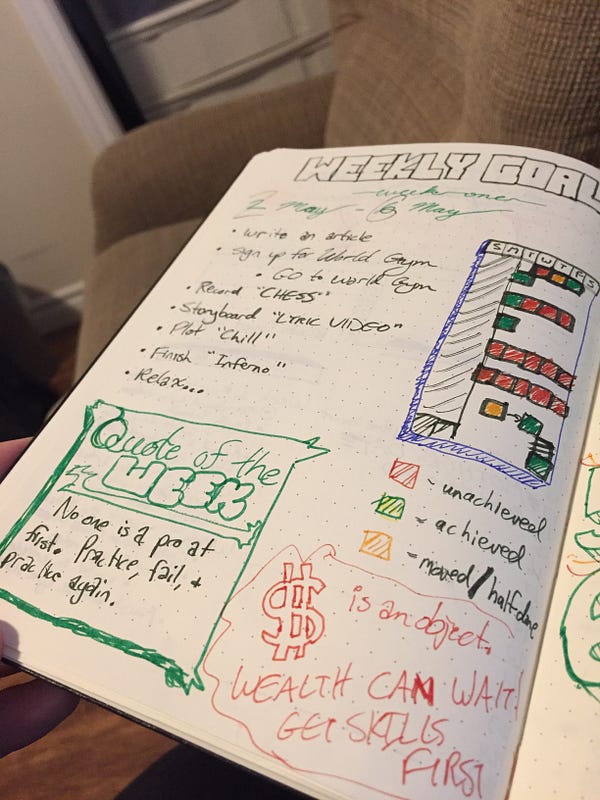 WEEKLY GOAL
week one
2 May - 6 May
• Write an article
• Sign up for World Gym
• Go to World Gym
• Record "CHESS"
• Storyboard "LYRIC VIDEO"
• Plot "Chill"
• Finish "Inferno"
• Relax...
S M T W T F S
- unachieved
- achieved
- moved/halfdone
Quote of the
WEEK
No one is a pro at
first. Practice, fail, +
practice again.
$ is an object.
WEALTH CAN WAIT!
GET SKILLS
FIRST